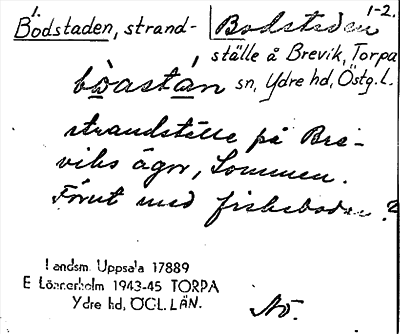 1. 1-2.
Bodstaden, strand- Bodstaden
ställe å Brevik, Torpa
sn, Ydre hd, Östg. l.
bòastán
strandställe på Bre-
viks ägor, Sommen.
Förut med fiskebodar?
Landsm. Uppsala 17889
E Lönnerholm 1943-45 TORPA
Ydre hd, ÖGL. LÄN.